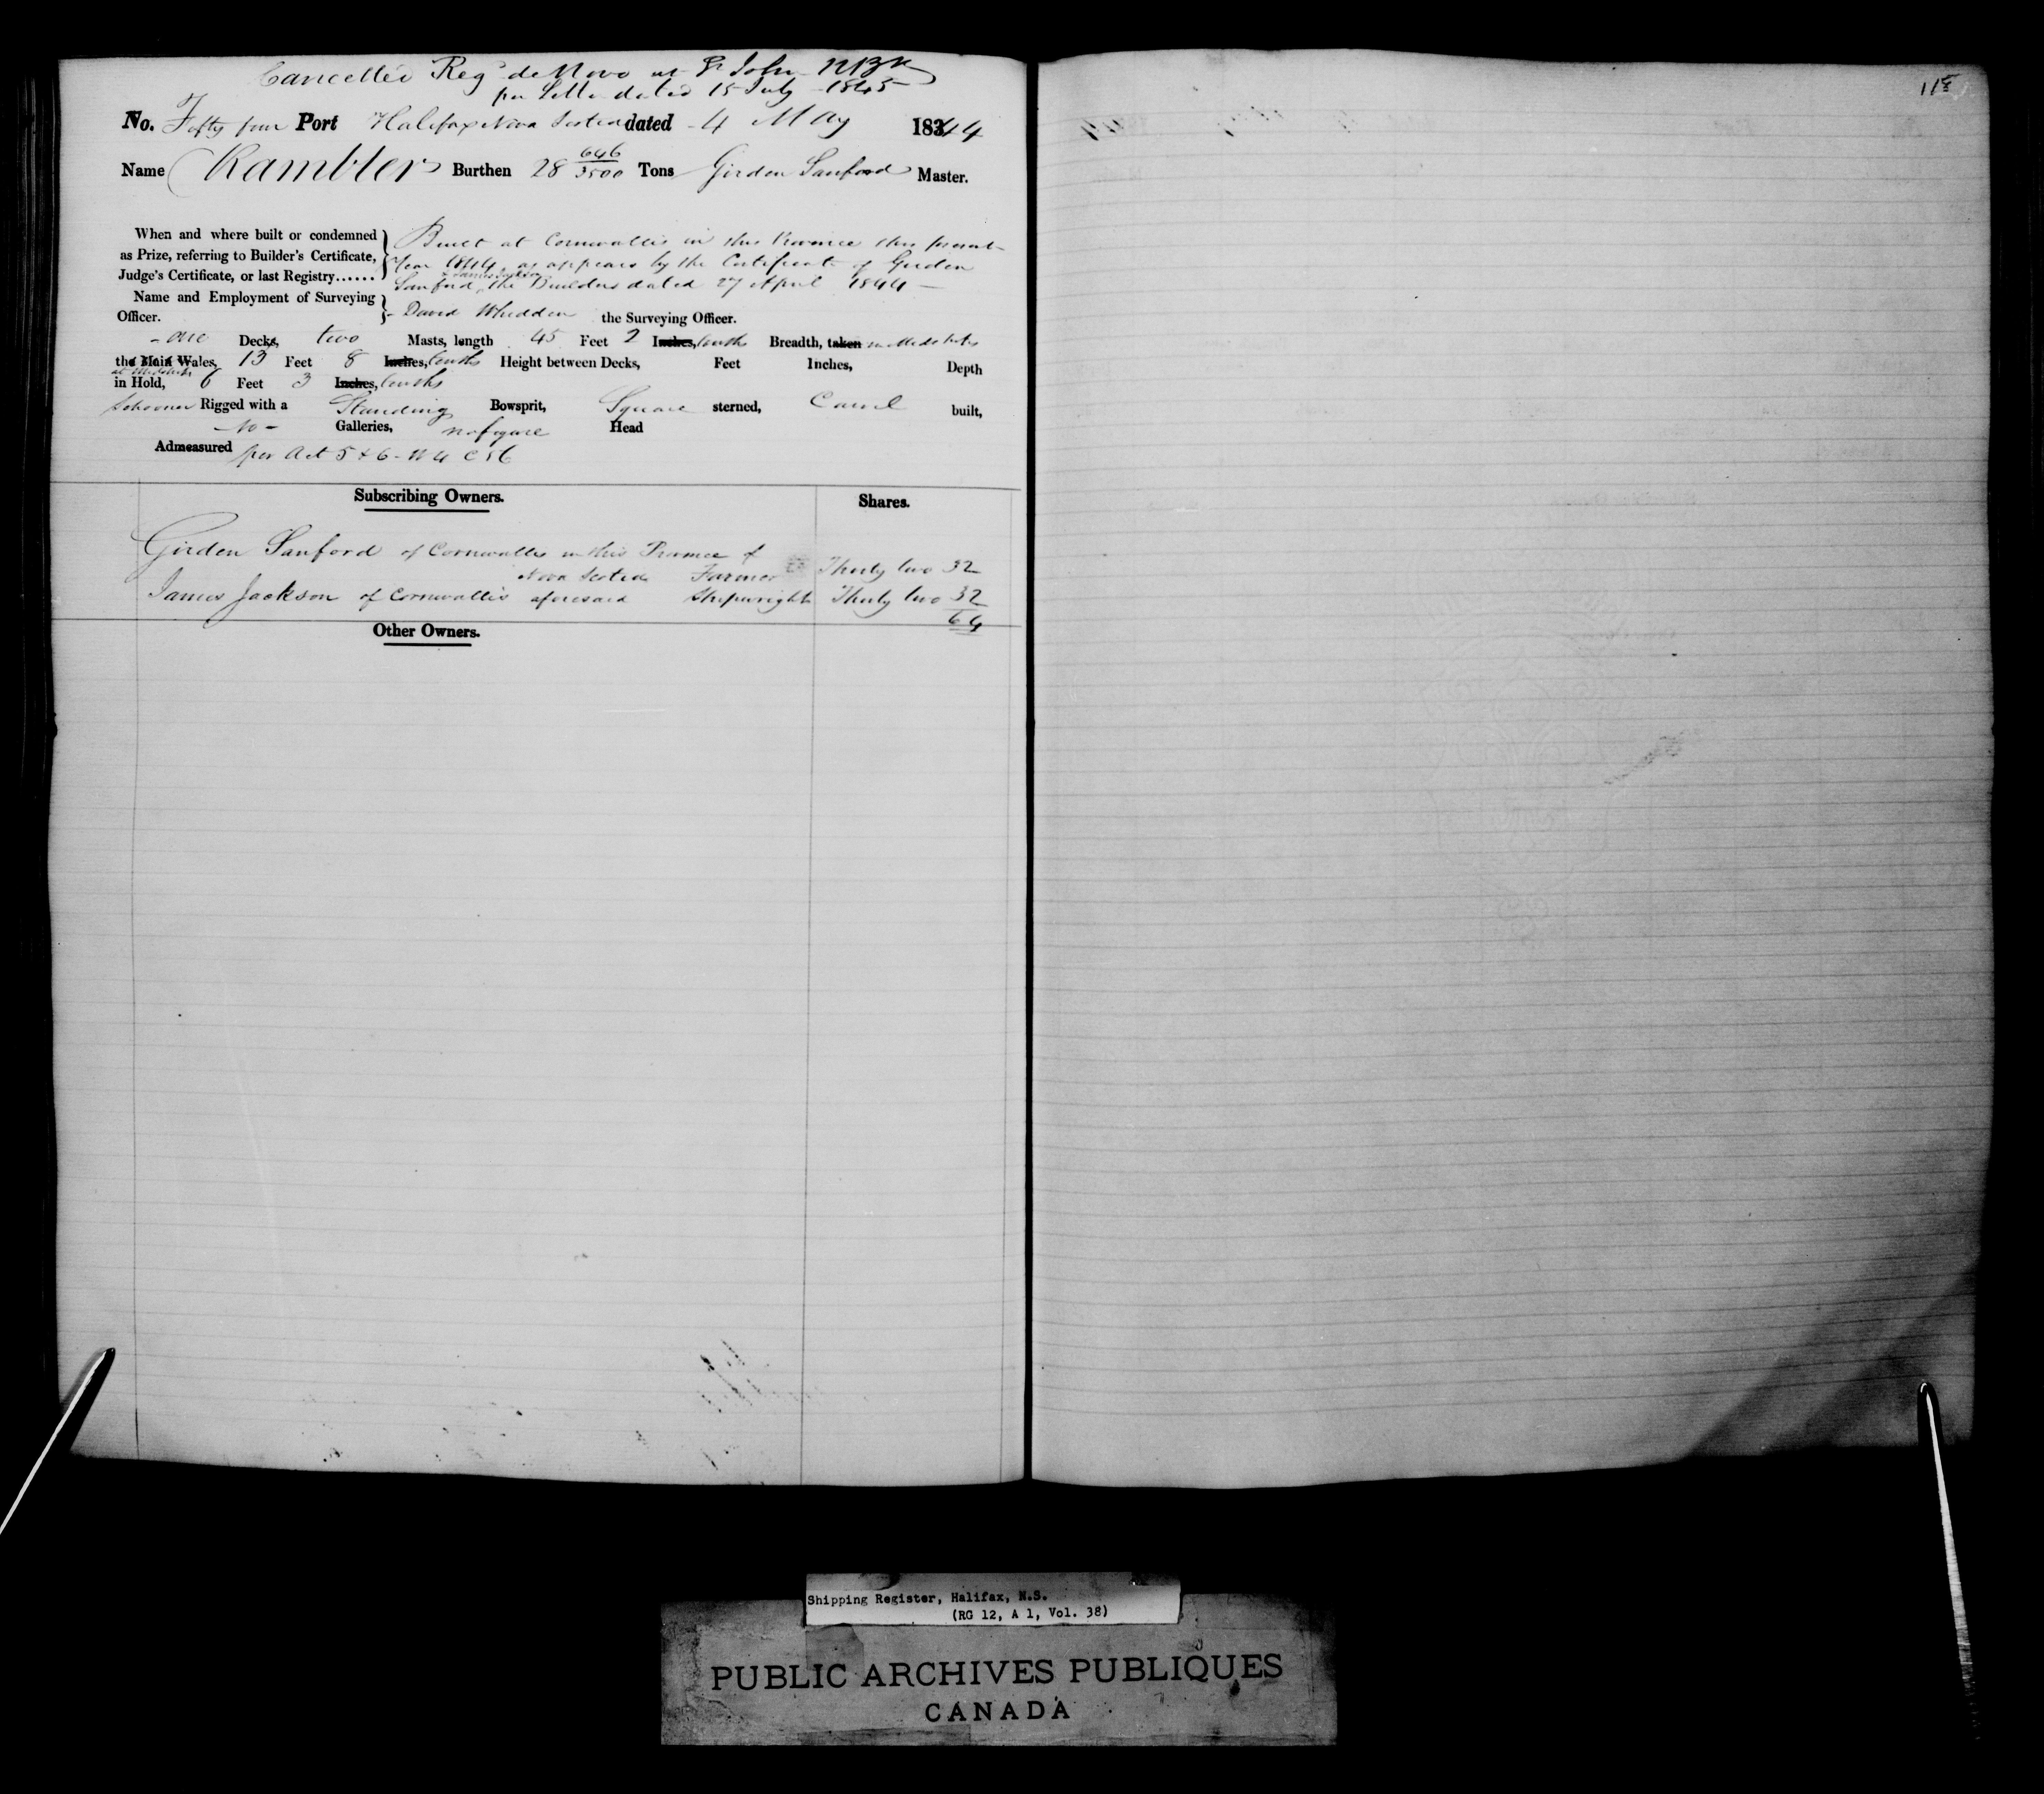 Cancelled Reg de Novo at St John NBk
per Letter dated 15 July 1845
No. Fifty four Port Halifax Nova Scotia dated - 4 May 18344
Name Rambler Burthen 28 646/3500 Tons Girden Sanford Master.
When and where built or condemned
as Prize, referring to Builder's Certificate,
Judge's Certificate, or last Registry......
Built at Cornwallis in this Province this present
Year 1844 as appears by the Certificate of Girden
& James Jackson
Sanford the Builders dated 27 April 1844 -
Name and Employment of Surveying
Officer.
- David Whidden the Surveying Officer.
- one Decks, two Masts, length 45 Feet 2 Inches, tenths Breadth, taken in Midships
the Main Wales, 13 Feet 8 Inches, tenths Height between Decks, Feet Inches, Depth
at Midships
in Hold, 6 Feet 3 Inches, tenths
Schooner Rigged with a Standing Bowsprit, Square sterned, Carvel built,
- No - Galleries, no figure Head
Admeasured per Act 5 & 6 - W 4 C 56
Subscribing Owners. Shares.
Girden Sanford of Cornwallis in this Province of
Nova Scotia Farmer Thirty two 32
James Jackson of Cornwallis aforesaid Shipwright Thirty two 32
64
Other Owners.
Shipping Register, Halifax, N.S.
(RG 12, A 1, Vol. 38)
PUBLIC ARCHIVES PUBLIQUES
CANADA